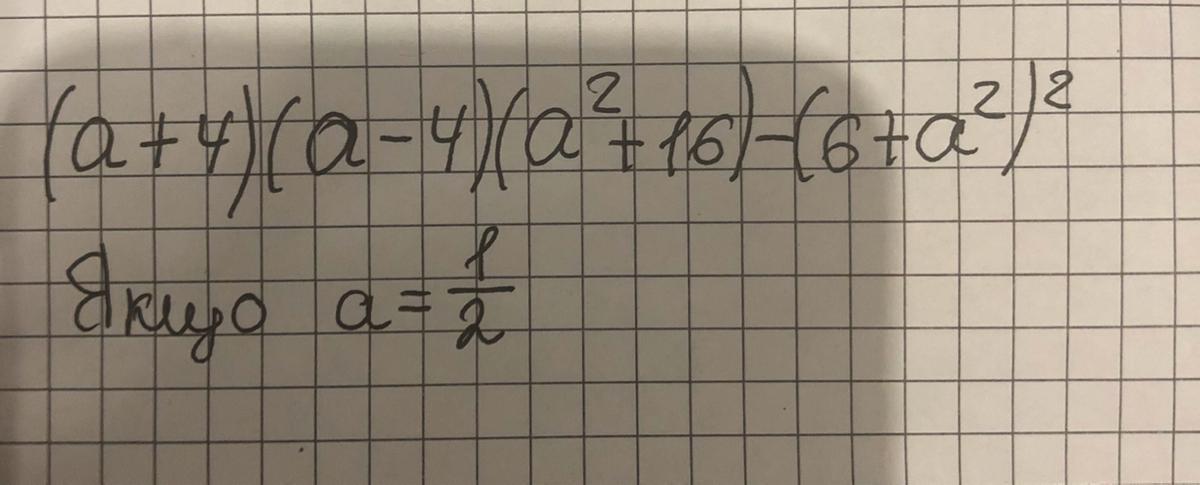 (a+4)(a-4)(a²+16)-(6+a²)²
Якщо a=1/2